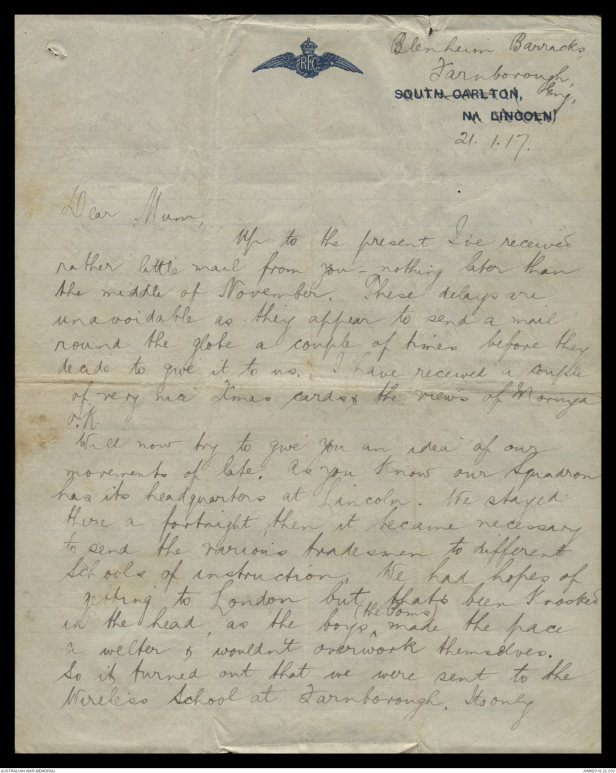 Blenheim Barracks,
Farnborough,
Eng,
RFC
SOUTH CARLTON,
Nr LINCOLN
21. 1. 17.
Dear Mum,
Up to the present I've received
rather little mail from you – nothing later than
the middle of November. These delays are
unavoidable as they appear to send a mail
round the globe a couple of times before they
decide to give it to us. I have received a couple
of very nice Xmas cards & the views of Moruya
O.K.
Will now try to give you an idea of our
movements of late. As you know our Squadron
has its headquarters at Lincoln. We stayed
there a fortnight, then it became necessary
to send the various tradesmen to different
Schools of instruction. We had hopes of
getting to London but that's been knocked
in the head, as the boys (the Toms) made the pace
a welter & wouldn't overwork themselves.
So it turned out that we were sent to the
Wireless School at Farnborough. Its only
AUSTRALIAN WAR MEMORIAL